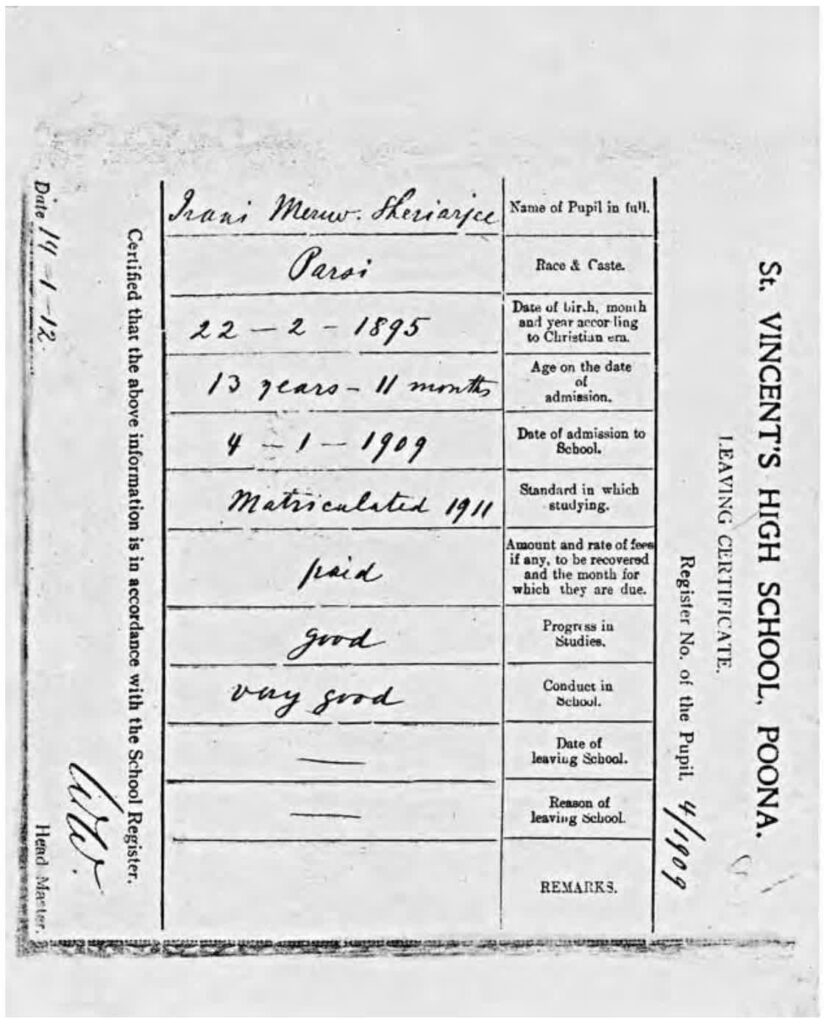 St. VINCENT'S HIGH SCHOOL, POONA.
LEAVING CERTIFICATE.
Register No. of the Pupil. 4/1909
Name of Pupil in full.
Irani Merw. Sheriarjee
Race & Caste.
Parsi
Date of birth, month
and year according
to Christian era.
22 – 2 – 1895
Age on the date
of
admission.
13 years – 11 months
Date of admission to
School.
4 – 1 – 1909
Standard in which
studying.
Matriculated 1911
Amount and rate of fees
if any, to be recovered
and the month for
which they are due.
paid
Progress in
Studies.
good
Conduct in
School.
very good
Date of
leaving School.
—
Reason of
leaving School.
—
REMARKS.
Certified that the above information is in accordance with the School Register.
Date 19–1–12
Head Master.